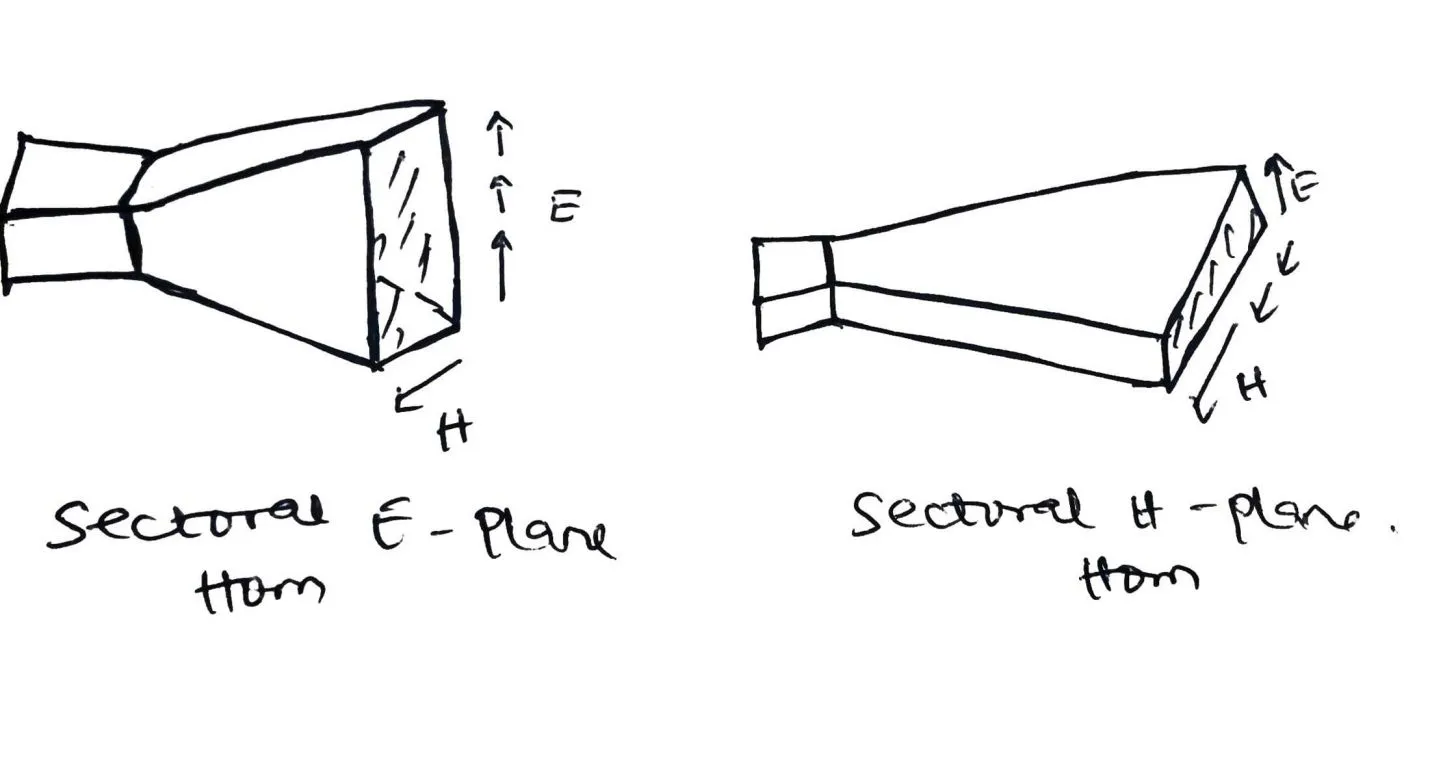 E
H
Sectoral E-plane
Horn
E
H
Sectoral H-plane.
Horn